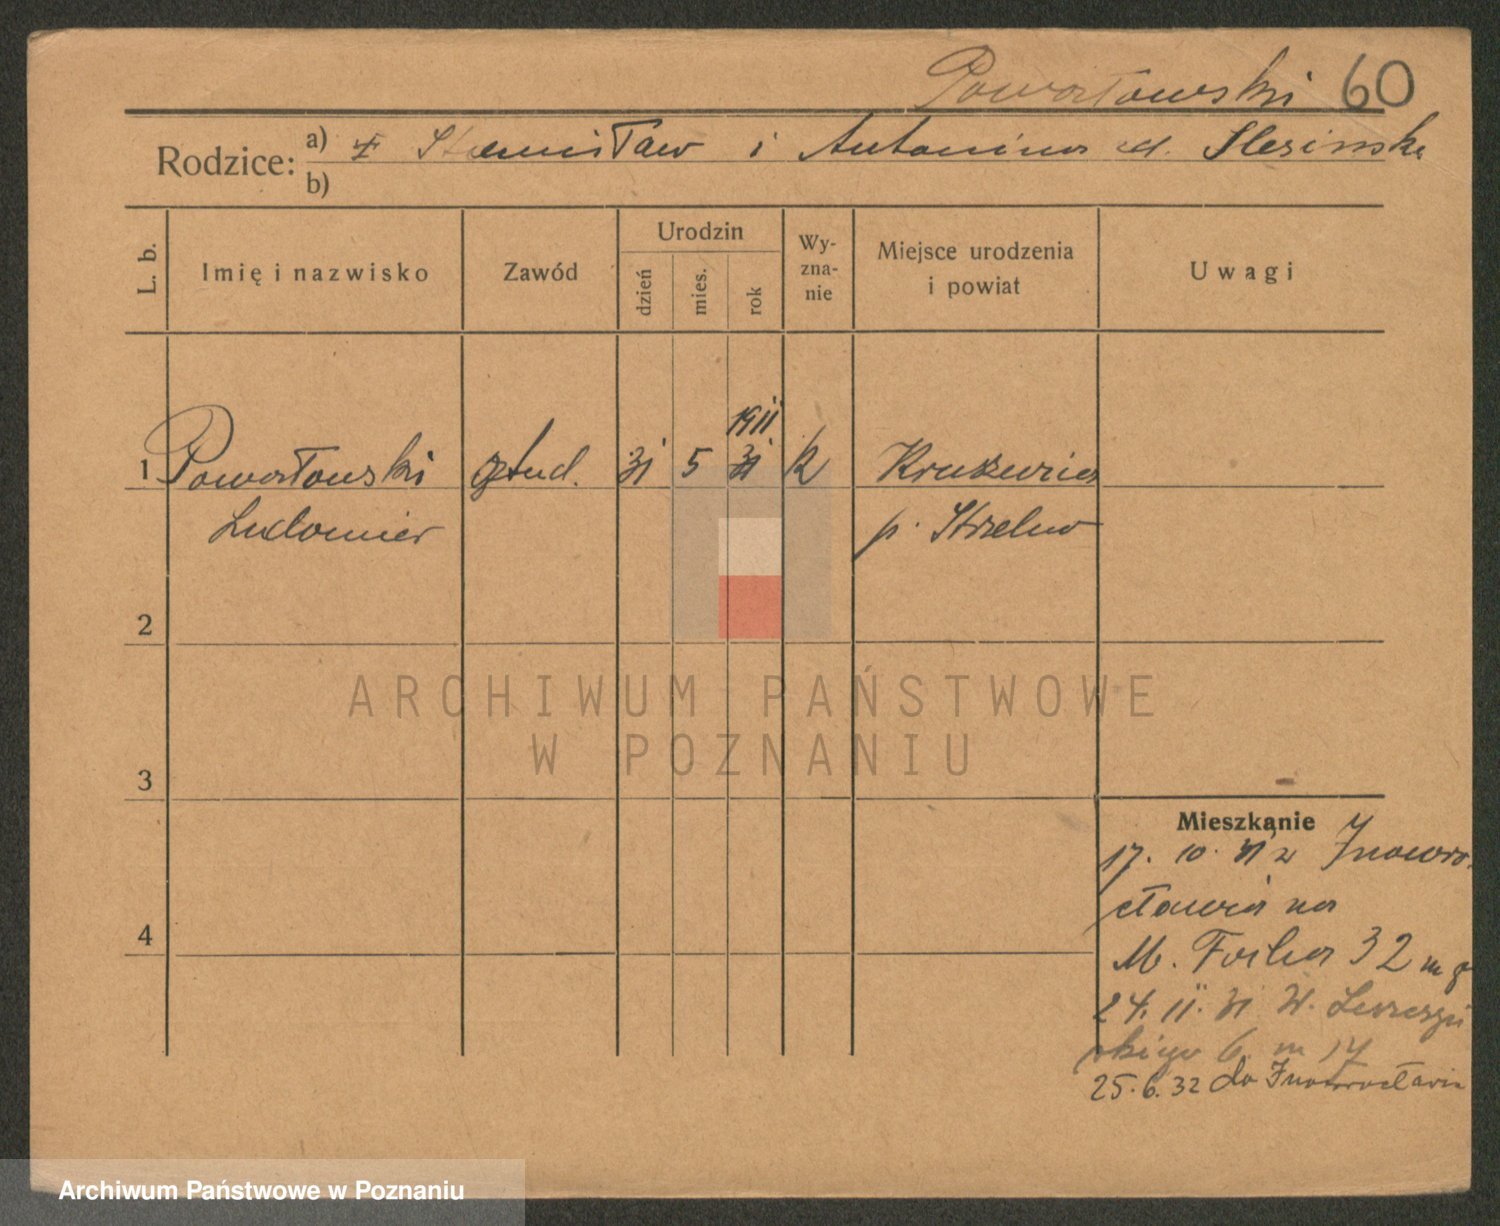 Powałowski 60
Rodzice: a) Stanisław i Antonina d. Slesinska
b)
L. b. Imię i nazwisko Zawód Urodzin dzień mies. rok Wy-zna-nie Miejsce urodzenia i powiat Uwagi
1911
1 Powałowski stud. 31 5 31 k Kruszwica
Ludomier p. Strzelno
2
ARCHIWUM PAŃSTWOWE
W POZNANIU
3
Mieszkanie
17. 10. 31 z Inowro-
cławia na
M. Focha 32 m
4
24. 11. 31 W.
skiego 6 m 17
25.6.32 do Inowrocławia
Archiwum Państwowe w Poznaniu